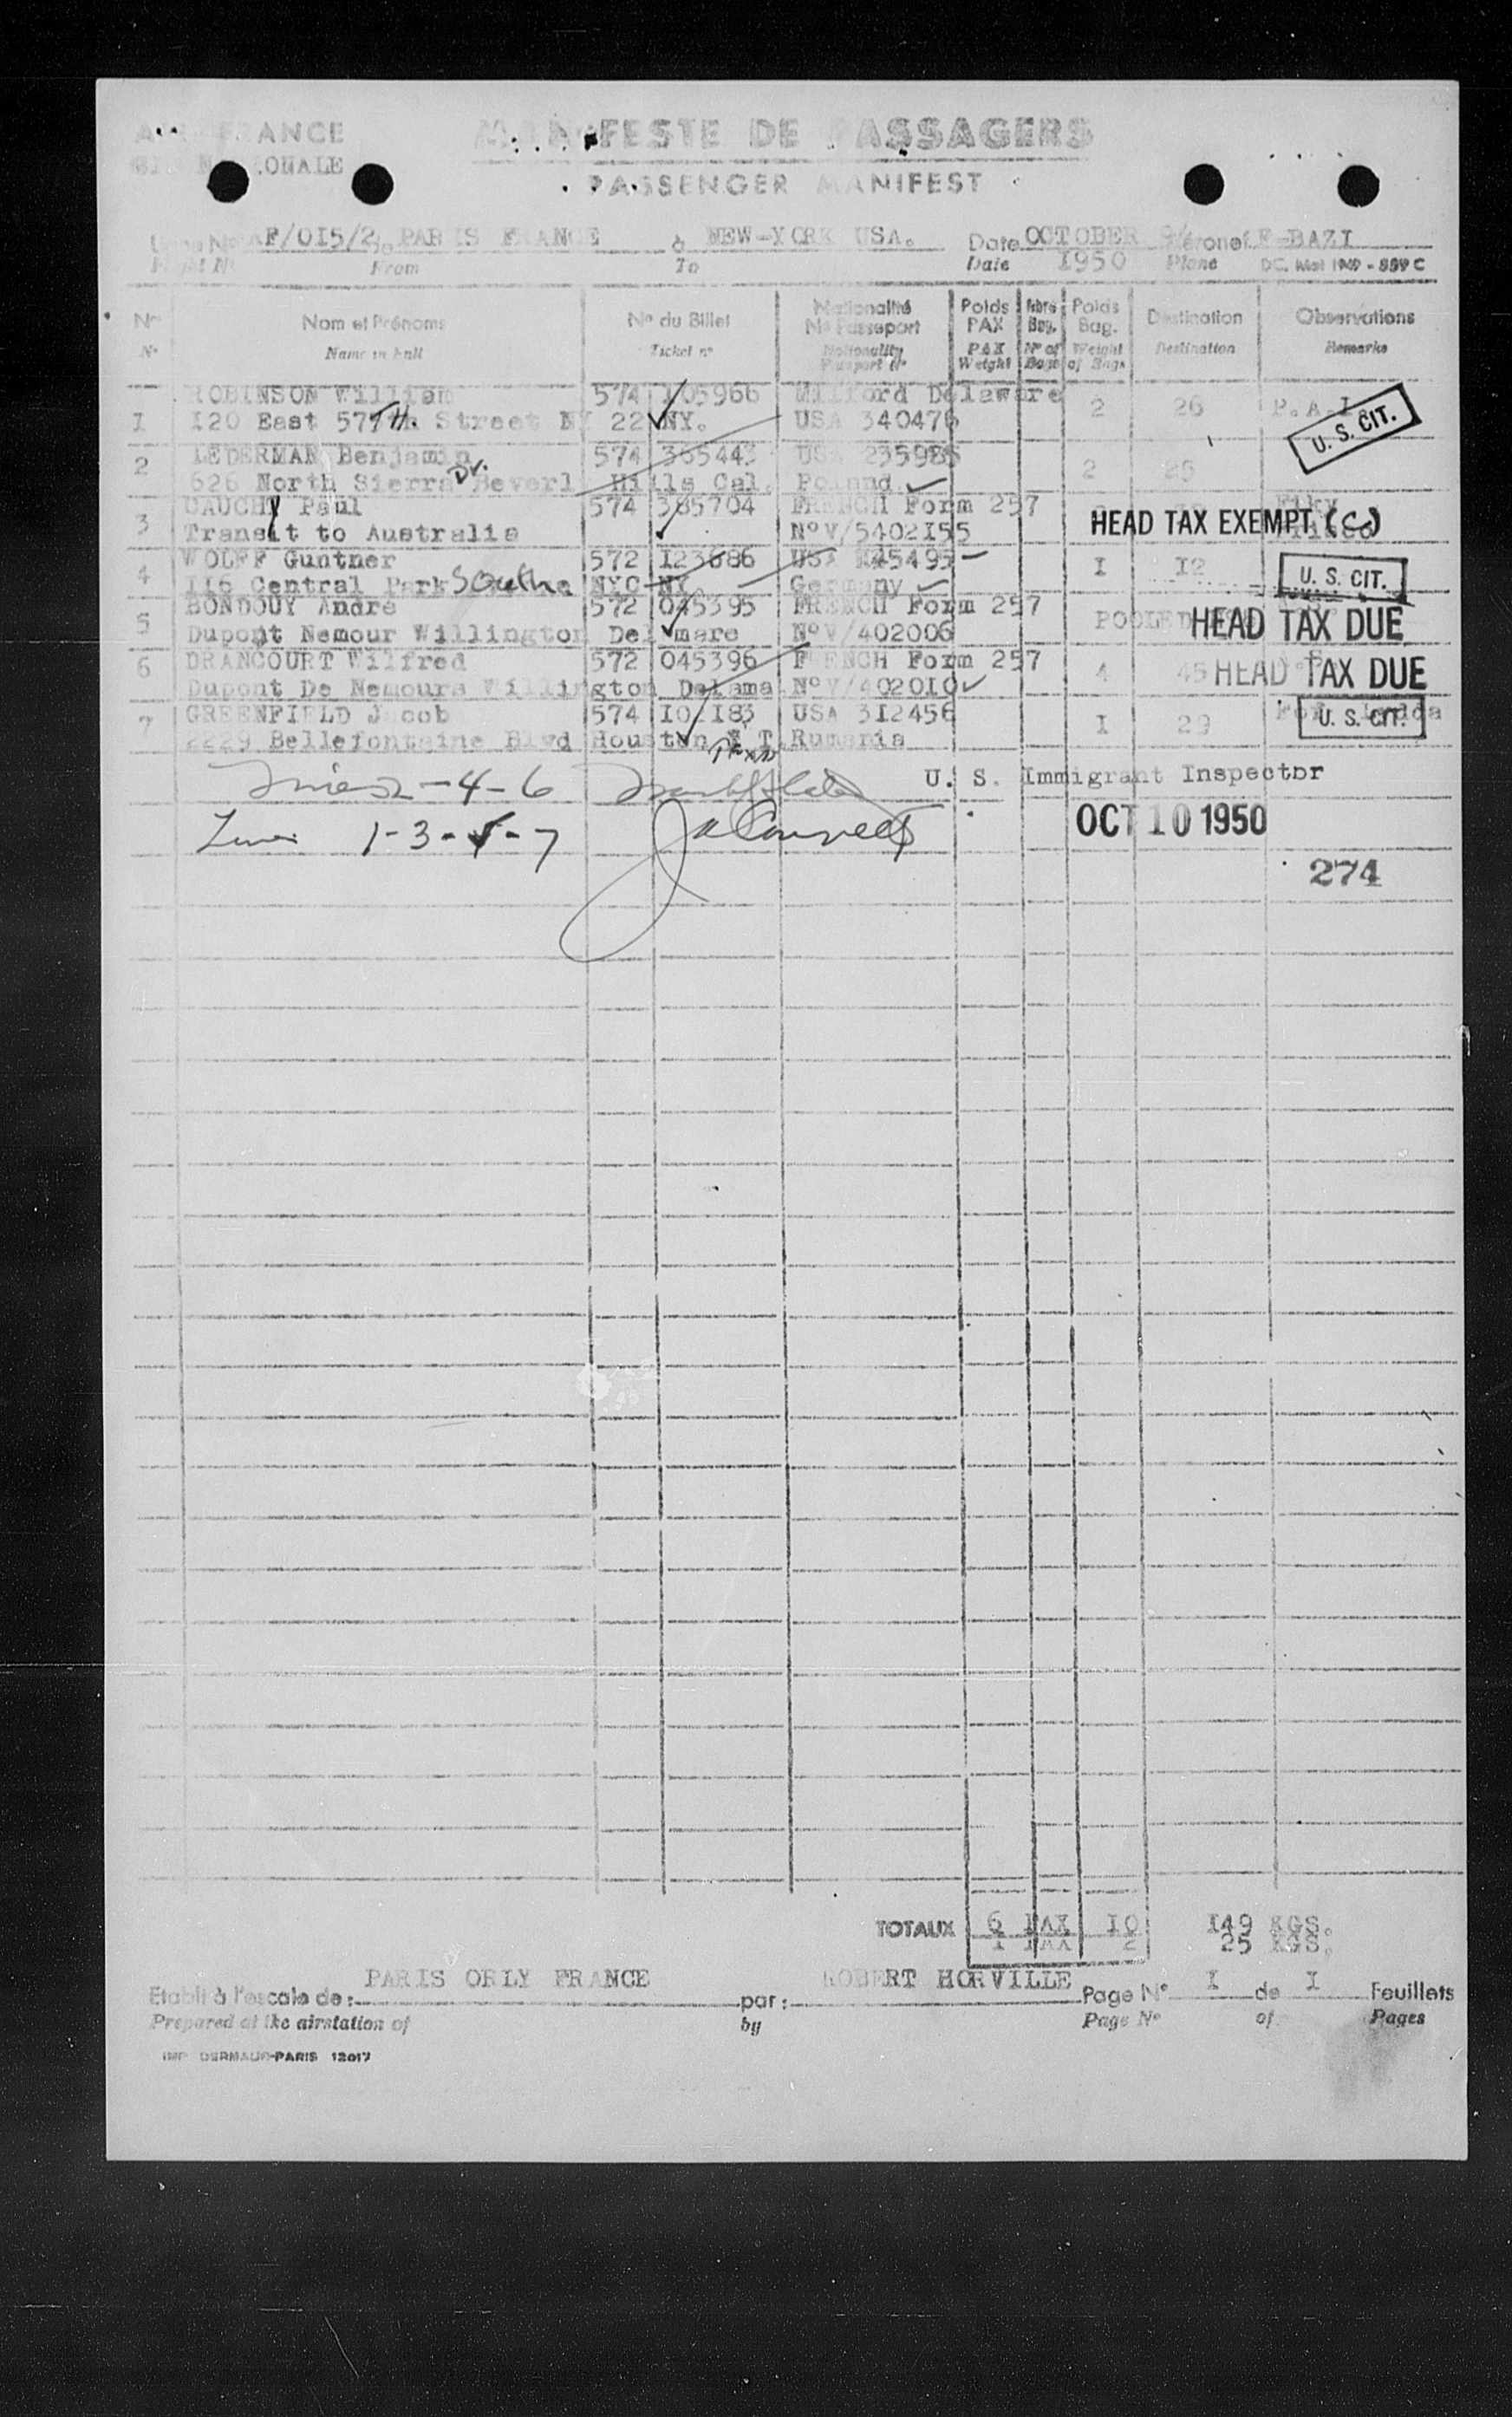 MANIFESTE DE PASSAGERS
PASSENGER MANIFEST
AF/015/2 PARIS FRANCE à NEW-YORK USA. Date OCTOBER F-BAZI
From To Date 1950 Plane
Nº Nom et Prénoms Nº du Billet Nationalité Nº Passeport Poids PAX Nbre Bag. Poids Bag. Destination Observations
Nº Name in full Ticket nº Nationality Passport Nº PAX Weight Nº of Bags Weight of Bags Destination Remarks
ROBINSON William 574 105966 Milford Delaware
1 120 East 57TH. Street NY 22 NY. USA 340476 2 26 P.A.I. U. S. CIT.
2 LEDERMAN Benjamin 574 365443 USA 235985
626 North Sierra Dr. Beverl Hills Cal. Poland 2 26
3 CAUCHY Paul 574 385704 FRENCH Form 257
Transit to Australia NºV/5402155 HEAD TAX EXEMPT (C)
4 WOLFF Guntner 572 123686 USA 45495 I 12 U. S. CIT.
116 Central Park South NYC NY Germany
5 BONDOUY André 572 045395 FRENCH Form 257
Dupont Nemour Willington Delmare NºV/402006 POOLED HEAD TAX DUE
6 DRANCOURT Wilfred 572 045396 FRENCH Form 257 4 45 HEAD TAX DUE
Dupont De Nemours Willington Delama NºV/402010
7 GREENFIELD Jacob 574 101183 USA 312456 I 29 U. S. CIT.
2229 Bellefontaine Blvd Houston Texas Rumania
-4-6 U. S. Immigrant Inspector
1-3-5-7 OCT 10 1950
274
TOTAUX 6 PAX 10 149 KGS.
1 PAX 2 25 KGS.
PARIS ORLY FRANCE ROBERT HORVILLE
Etabli à l'escale de : par : Page Nº I de I Feuillets
Prepared at the airstation of by Page Nº of Pages
IMP. DERMAUR-PARIS 12017